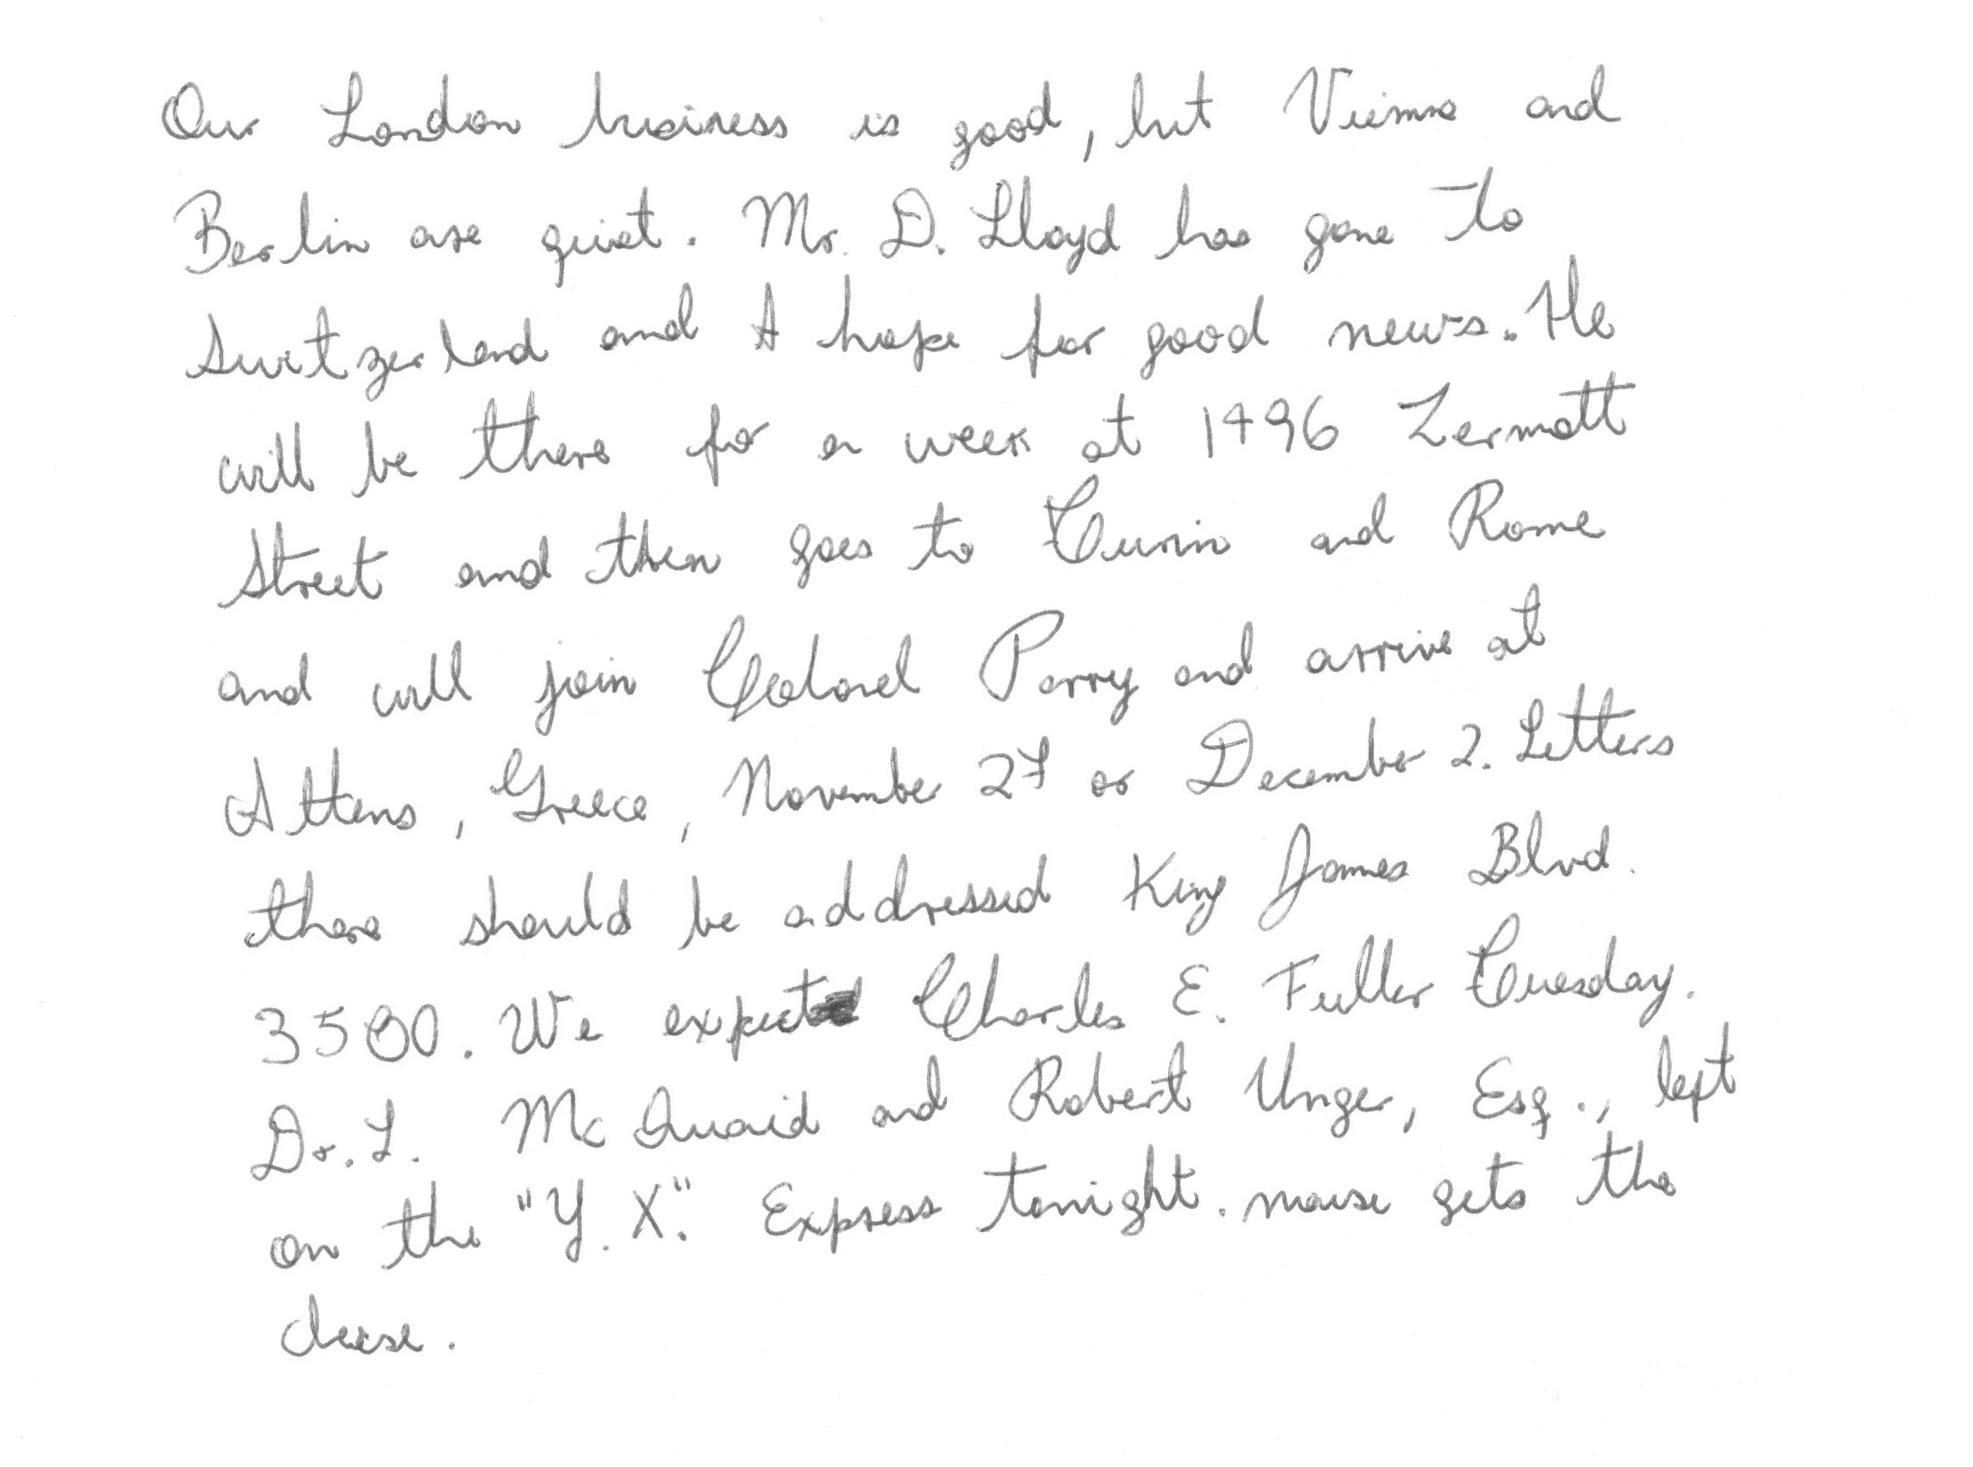 Our London business is good, but Vienna and
Berlin are quiet. Mr. D. Lloyd has gone to
Switzerland and I hope for good news. He
will be there for a week at 1496 Zermott
Street and then goes to Turin and Rome
and will join Colonel Parry and arrive at
Attens, Greece, November 27 or December 2. Letters
there should be addressed King James Blvd.
3580. We expect Charles E. Fuller Tuesday.
Dr. L. McQuaid and Robert Unger, Esq., left
on the "Y. X." Express tonight. mouse gets the
cheese.